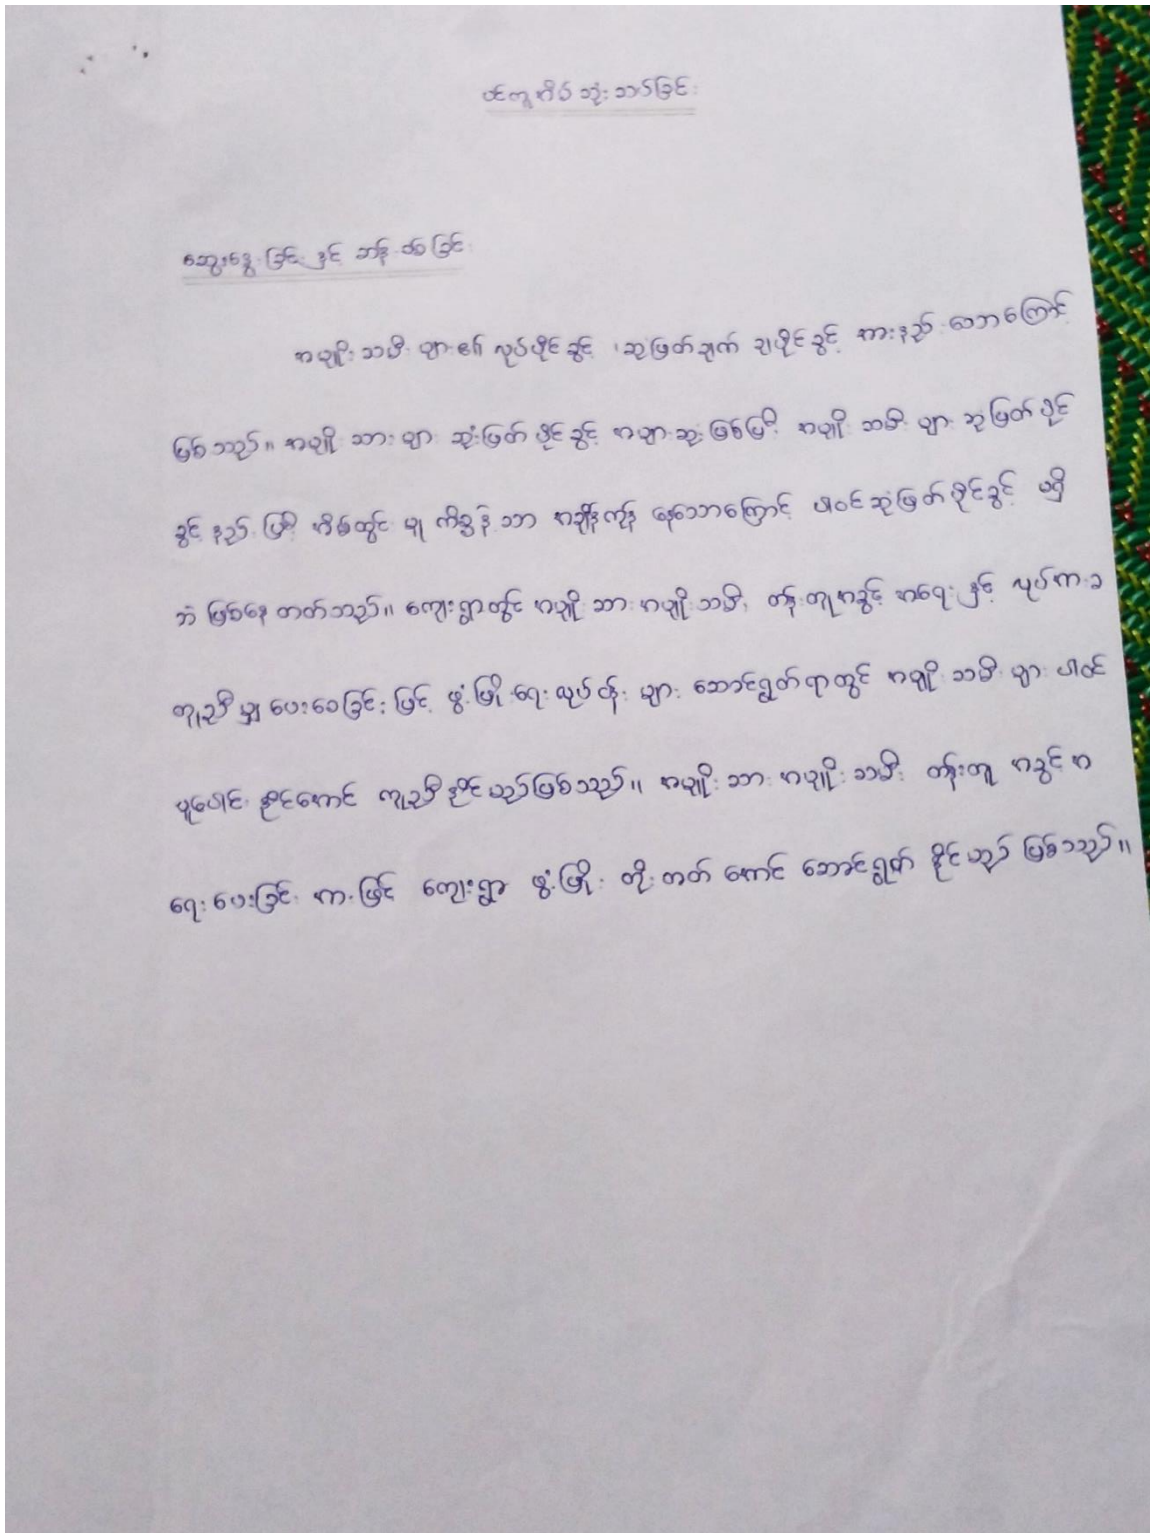 ပင်ကူအိမ် သုံးသပ်ခြင်း
ဆွေးနွေးခြင်း နှင့် ဆန်းစစ်ခြင်း
အမျိုးသမီးများ၏ လုပ်ပိုင်ခွင့် ၊ ဆုံးဖြတ်ချက် ချပိုင်ခွင့် ကားနည်းသောကြောင့်
ဖြစ်သည်။ အမျိုးသားများ ဆုံးဖြတ်ပိုင်ခွင့် အများဆုံးဖြစ်ပြီး အမျိုးသမီးများ ဆုံးဖြတ်ပိုင်
ခွင့်နည်းပြီး အိမ်တွင်းမှု ကိစ္စ၌သာ အချိန်ကုန်နေသောကြောင့် ပါဝင်ဆုံးဖြတ်ပိုင်ခွင့် မရှိ
သဖြစ်နေတတ်သည်။ ကျေးရွာတွင် အမျိုးသား အမျိုးသမီး တန်းတူအခွင့်အရေးနှင့် လုပ်ကား
တူညီမျှ ပေးဝေခြင်းဖြင့် ဖွံ့ဖြိုးရေးလုပ်ငန်းများ ဆောင်ရွက်ရာတွင် အမျိုးသမီးများ ပါဝင်
ပူးပေါင်းနိုင်အောင် ကူညီနိုင်မည်ဖြစ်သည်။ အမျိုးသား အမျိုးသမီး တန်းတူ အခွင့်အ
ရေးပေးခြင်းအားဖြင့် ကျေးရွာ ဖွံ့ဖြိုးတိုးတတ်အောင် ဆောင်ရွက်နိုင်မည် ဖြစ်သည်။